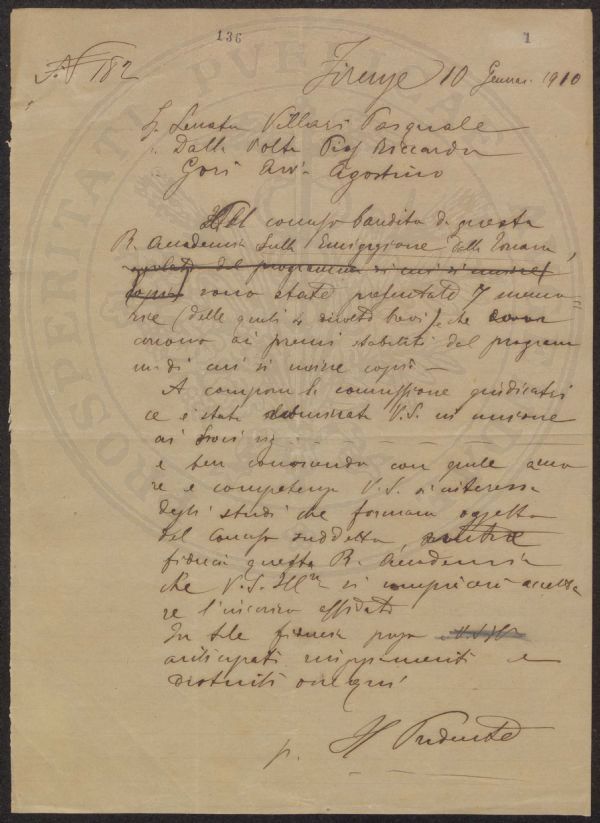 136
1
N 182
Firenze 10 Gennaio 1910
Senatore Villari Pasquale
Dalla Volta Prof Riccardo
Gori Avv. Agostino
Al concorso bandito da questa
R. Accademia sulla Emigrazione dalla Toscana,
del programma di cui si unisce
copia sono state presentate 7 memo=
rie (delle quali 4 brevi) che con
corrono ai premi stabiliti dal program
ma di cui si unisce copia —
A comporre la commissione giudicatri
ce è stata nominata V.S. in unione
ai Soci sig.
e ben conoscendo con quale amo
re e competenza V.S. si interessa
degli studi che formano oggetto
del concorso suddetto,
fiducia questa R. Accademia
che V.S. Ill ma si compiacerà accetta
re l'incarico affidato
In tale fiducia porgo
anticipati ringraziamenti e
distinti ossequi
p. Il Presidente
PROSPERITATI PVBLICAE